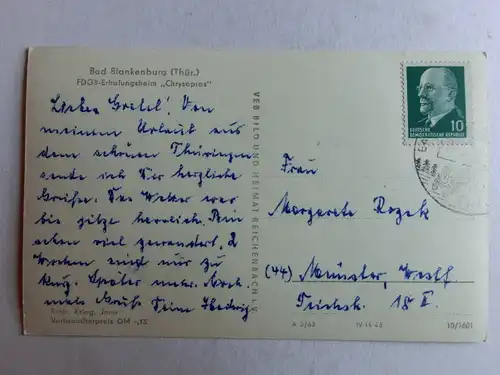 Bad Blankenburg (Thür.)
FDGB-Erholungsheim „Chrysopras"
Liebe Gretel! Von
meinem Urlaub aus
dem schönen Thüringen
sende ich Dir herzliche
Grüße. Das Wetter war
bis jetzt herrlich. Sind
schon viel gewandert. 2
Wochen sind nur zu
kurz. Später mehr. Noch
mals Gruß Deine Hedwig
Foto: Krieg, Jena
Verbraucherpreis DM -,15
VEB BILD UND HEIMAT REICHENBACH i. V.
10
DEUTSCHE
DEMOKRATISCHE REPUBLIK
Frau
Margarete Rozek
(44) Münster, Westf
18 II.
A 3/63 IV-14-45 10/1601